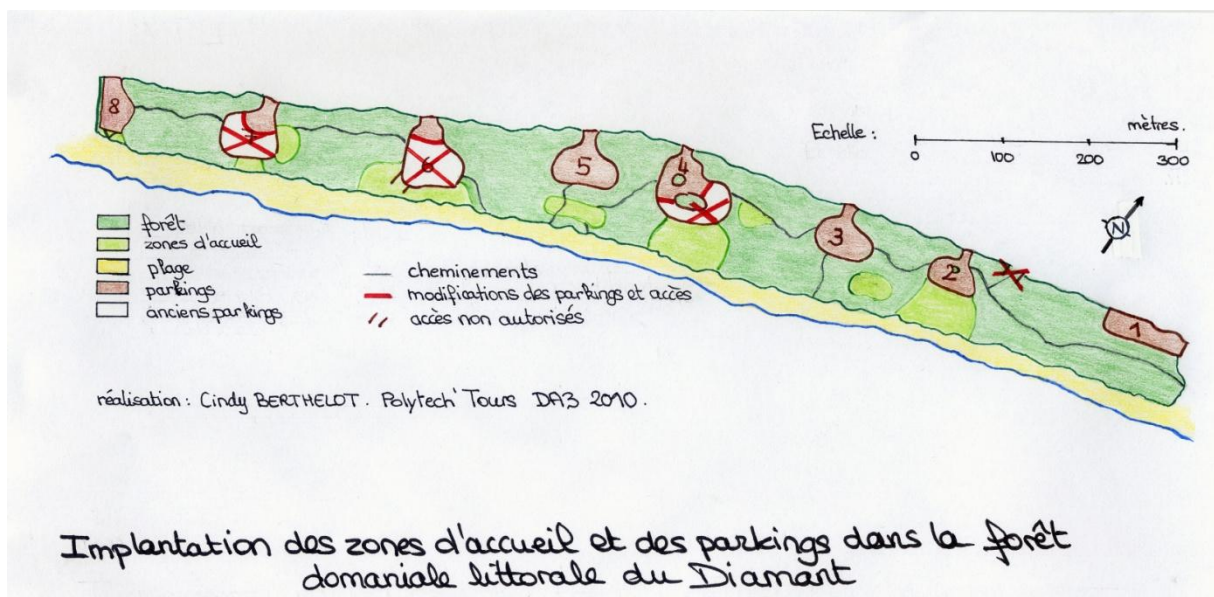 8
7
6
5
4
3
2
1
Echelle :
mètres.
0 100 200 300
N
forêt
zones d'accueil
plage
parkings
anciens parkings
cheminements
modifications des parkings et accès
accès non autorisés
réalisation : Cindy BERTHELOT. Polytech'Tours DA3 2010.
Implantation des zones d'accueil et des parkings dans la forêt
domaniale littorale du Diamant